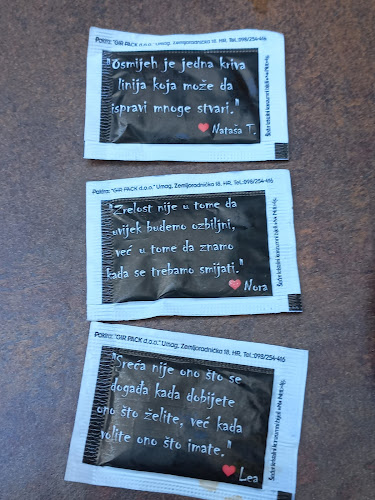 Pakira: "GIR PACK d.o.o." Umag, Zemljoradnička 18, HR, Tel.:098/254-416
"Osmijeh je jedna kriva
linija koja može da
ispravi mnoge stvari."
Nataša T.
Pakira: "GIR PACK d.o.o." Umag, Zemljoradnička 18, HR, Tel.:098/254-416
"Zrelost nije u tome da
uvijek budemo ozbiljni,
već u tome da znamo
kada se trebamo smijati."
Nora
Pakira: "GIR PACK d.o.o." Umag, Zemljoradnička 18, HR, Tel.:098/254-416
"Sreća nije ono što se
događa kada dobijete
ono što želite, već kada
volite ono što imate."
Lea